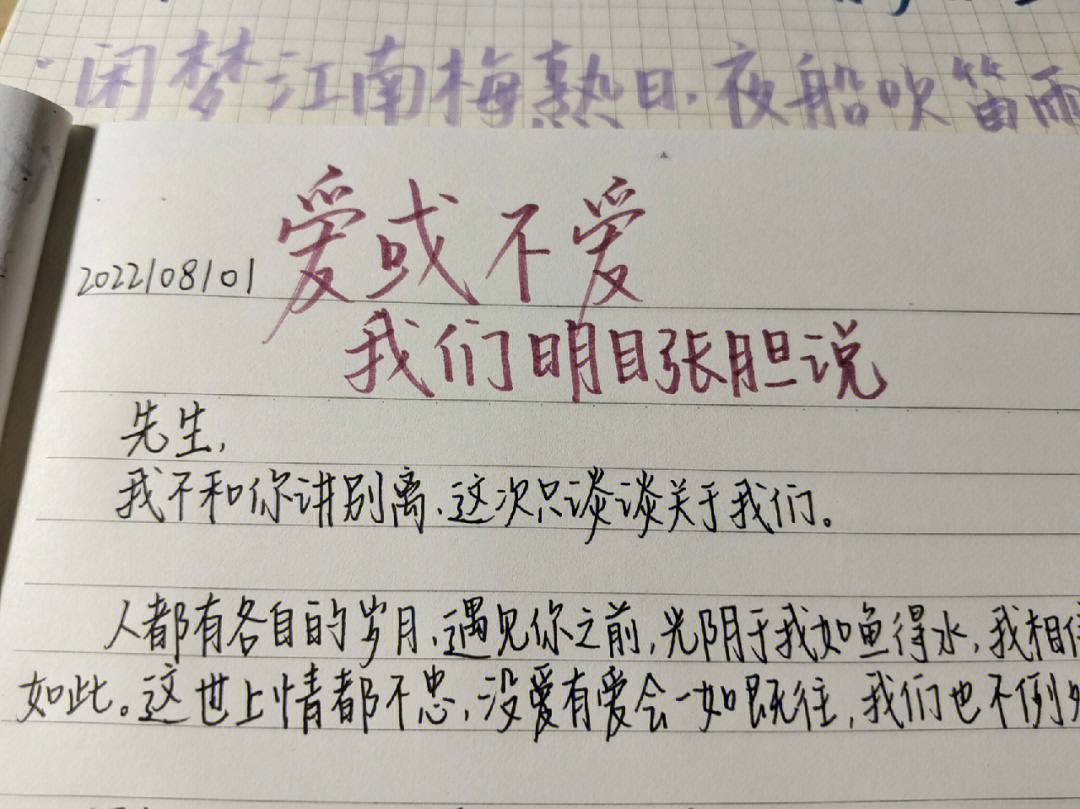 闲梦江南梅熟日,夜船吹笛雨
2022/08/01
爱或不爱
我们明目张胆说
先生,
我不和你讲别离、这次只谈谈关于我们。
人都有各自的岁月、遇见你之前,光阴于我如鱼得水,我相信
如此。这世上情都不忠,没爱有爱会一如既往,我们也不例外